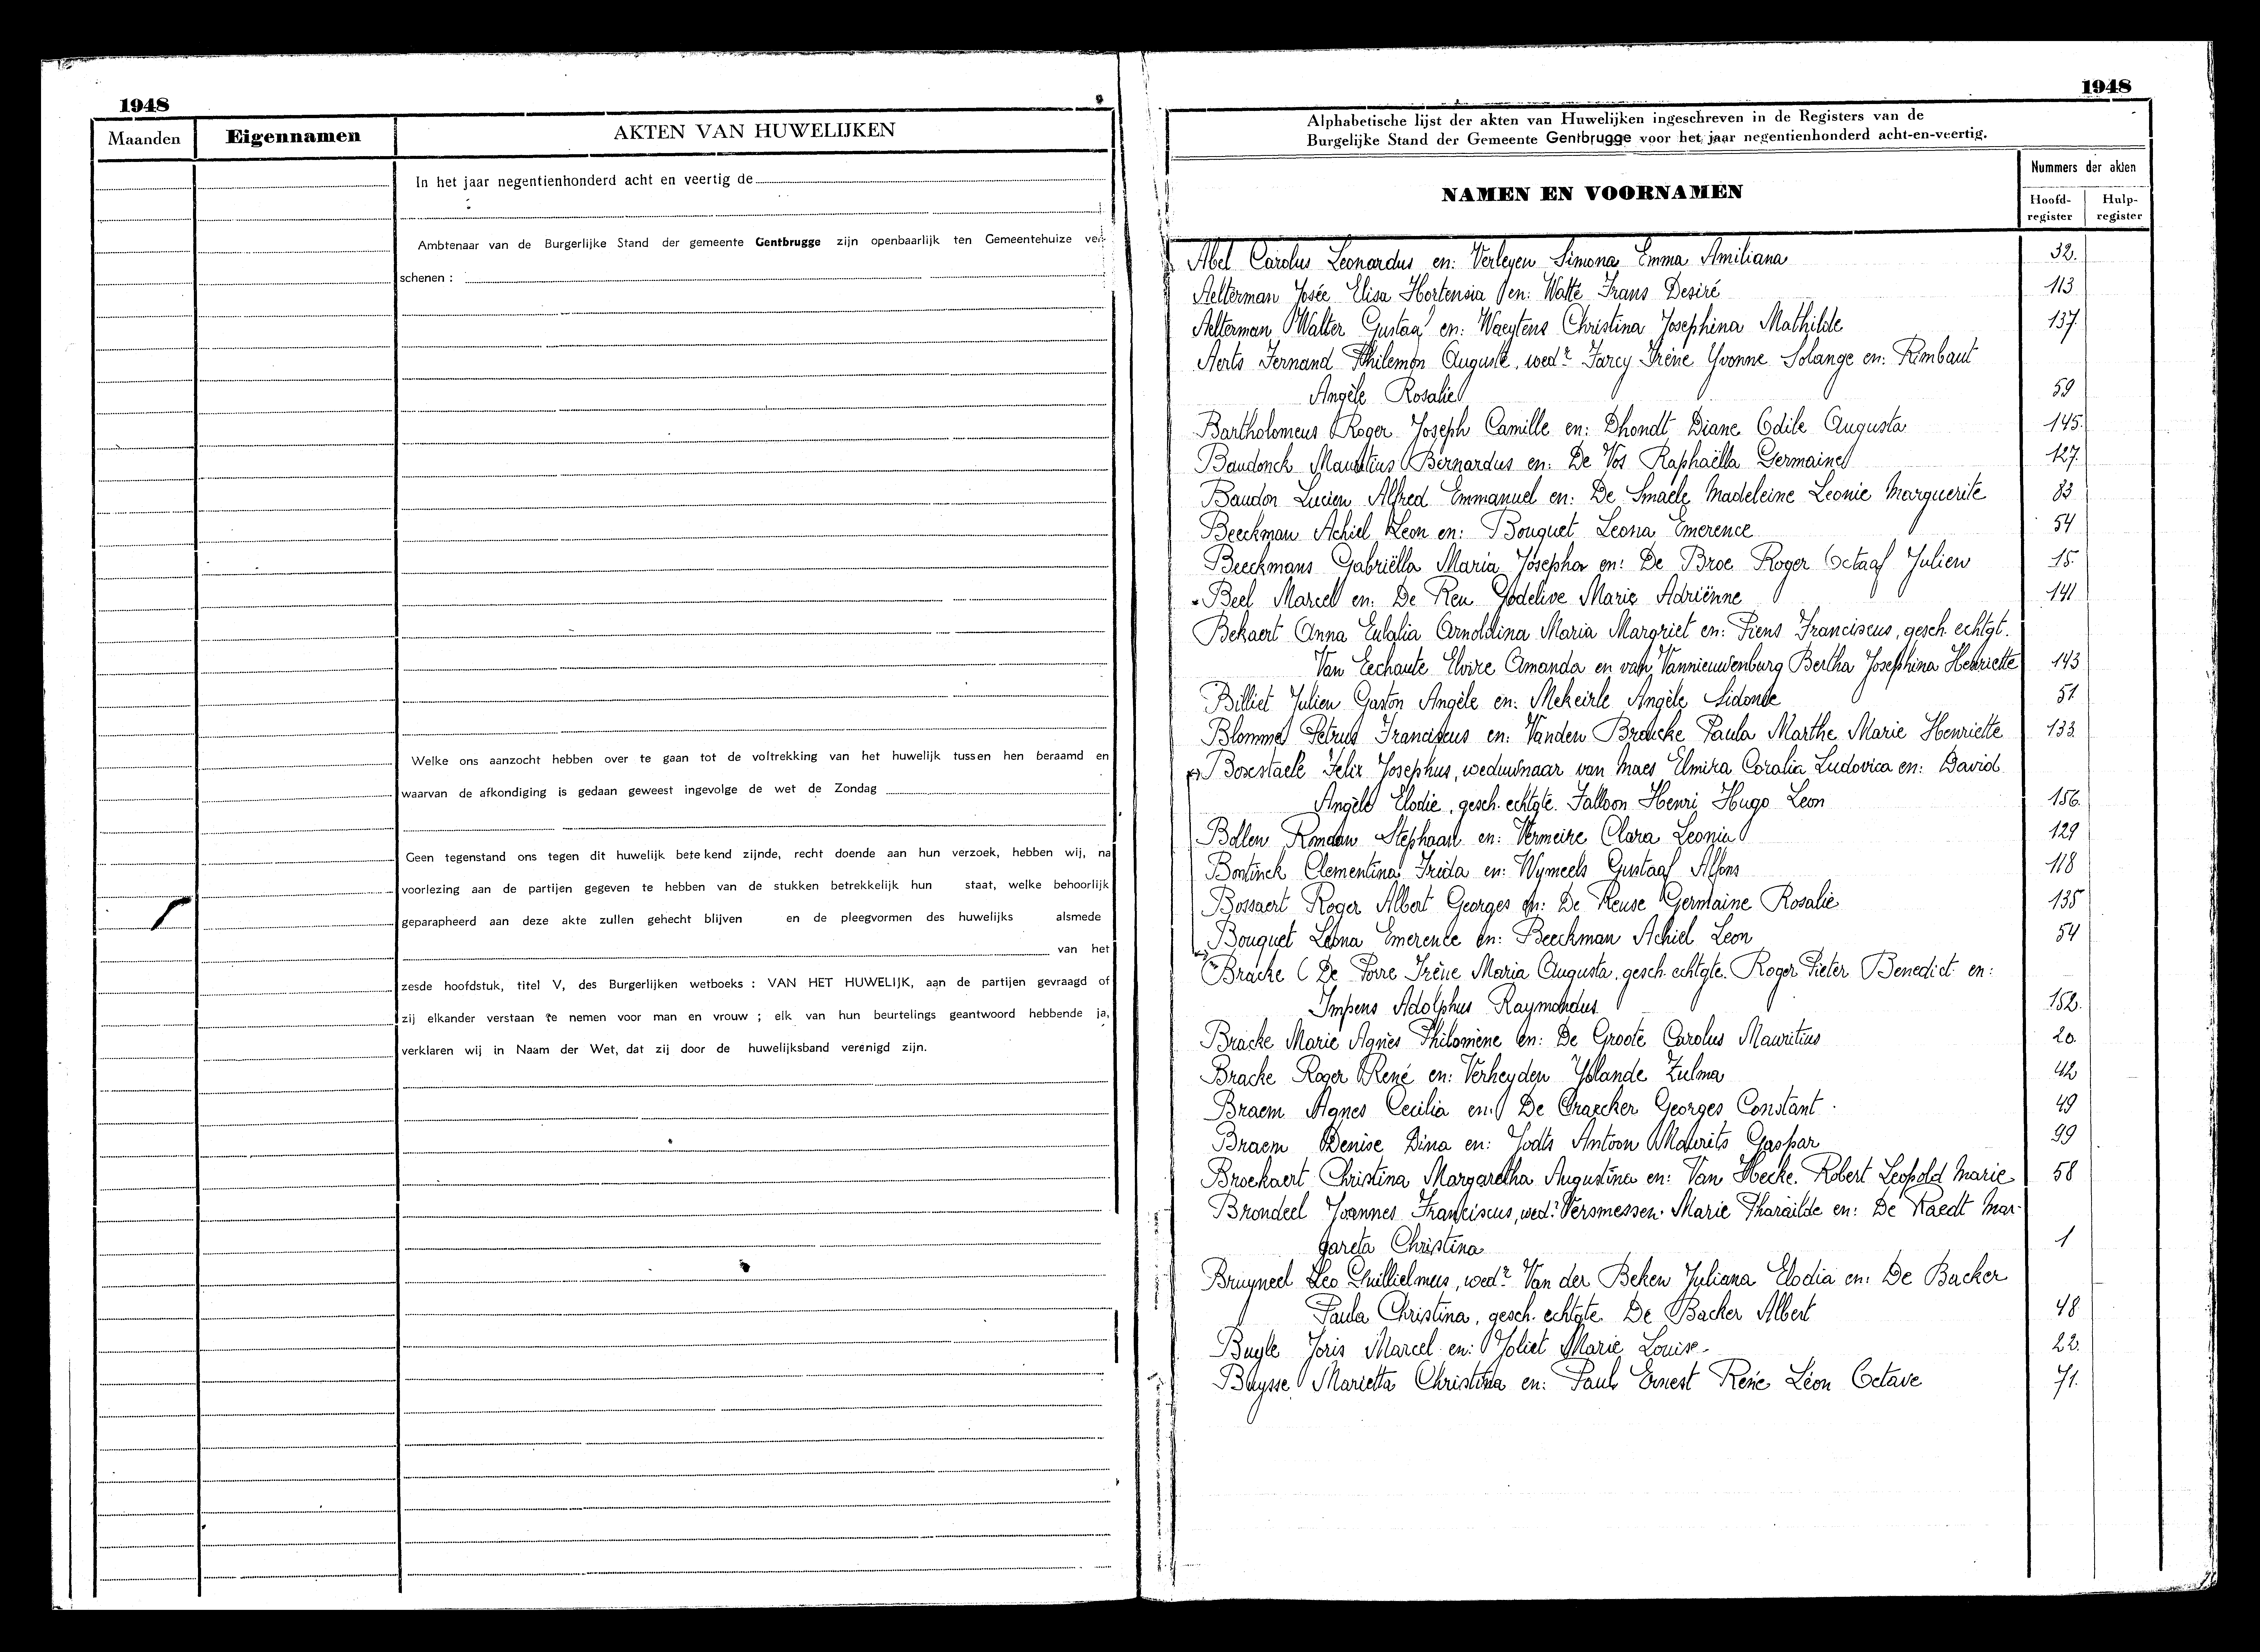 1948
Maanden Eigennamen AKTEN VAN HUWELIJKEN
In het jaar negentienhonderd acht en veertig de
Ambtenaar van de Burgerlijke Stand der gemeente Gentbrugge zijn openbaarlijk ten Gemeentehuize ver-
schenen :
Welke ons aanzocht hebben over te gaan tot de voltrekking van het huwelijk tussen hen beraamd en
waarvan de afkondiging is gedaan geweest ingevolge de wet de Zondag
Geen tegenstand ons tegen dit huwelijk betekend zijnde, recht doende aan hun verzoek, hebben wij, na
voorlezing aan de partijen gegeven te hebben van de stukken betrekkelijk hun staat, welke behoorlijk
geparapheerd aan deze akte zullen gehecht blijven en de pleegvormen des huwelijks alsmede
van het
zesde hoofdstuk, titel V, des Burgerlijken wetboeks : VAN HET HUWELIJK, aan de partijen gevraagd of
zij elkander verstaan te nemen voor man en vrouw ; elk van hun beurtelings geantwoord hebbende ja,
verklaren wij in Naam der Wet, dat zij door de huwelijksband verenigd zijn.
1948
Alphabetische lijst der akten van Huwelijken ingeschreven in de Registers van de
Burgelijke Stand der Gemeente Gentbrugge voor het jaar negentienhonderd acht-en-veertig.
NAMEN EN VOORNAMEN
Nummers der akten
Hoofd-register Hulp-register
Abel Carolus Leonardus en: Verleyen Simona Emma Amiliana 32.
Aelterman Josée Elisa Hortensia en: Watté Frans Desiré 113
Aelterman Walter Gustaaf en: Waeytens Christina Josephina Mathilde 137.
Aerts Fernand Philemon Auguste, wedr Farcy Irène Yvonne Solange en: Rimbaut
Angèle Rosalie 59
Bartholomeus Roger Joseph Camille en: Dhondt Diane Odile Augusta 145.
Baudonck Mauritius Bernardus en: De Vos Raphaëlla Germaine 127.
Baudon Lucien Alfred Emmanuel en: De Smaele Madeleine Leonie Marguerite 83
Beeckman Achiel Leon en: Bouquet Leona Emerence 54
Beeckmans Gabriëlla Maria Josepha en: De Broe Roger Octaaf Julien 15.
Beel Marcel en: De Reu Godelive Marie Adriënne 141
Bekaert Anna Eulalia Arnoldina Maria Margriet en: Piens Franciscus, gesch. echtgt.
Van Eechaute Elvire Amanda en van Vannieuwenburg Bertha Josephina Henriette 143
Billiet Julien Gaston Angèle en: Mekeirle Angèle Sidonie 51
Blomme Petrus Franciscus en: Vanden Broucke Paula Marthe Marie Henriette 133.
Boxstaele Felix Josephus, weduwnaar van Maes Elmira Coralia Ludovica en: David
Angèle Elodie, gesch. echtgte. Falloon Henri Hugo Leon 156.
Bollen Romaan Stephaan en: Vermeire Clara Leonia 129
Bontinck Clementina Frida en: Wymeels Gustaaf Alfons 118
Bossaert Roger Albert Georges en: De Reuse Germaine Rosalie 135
Bouquet Leona Emerence en: Beeckman Achiel Leon 54
Bracke (De Porre Irène Maria Augusta, gesch. echtgte. Roger Pieter Benedict en:
Impens Adolphus Raymondus 152.
Bracke Marie Agnès Philomène en: De Groote Carolus Mauritius 20.
Bracke Roger René en: Verheyden Yolande Zulma 42
Braem Agnes Cecilia en: De Craecker Georges Constant 49
Braem Denise Dina en: Jodts Antoon Maurits Gaspar 99
Broekaert Christina Margaretha Augustina en: Van Hecke Robert Leopold Marie 58
Brondeel Joannes Franciscus, wedr Versmessen Marie Pharaïlde en: De Raedt Mar-
gareta Christina 1
Bruyneel Leo Guillielmus, wedr Van der Beken Juliana Elodia en: De Backer
Paula Christina, gesch. echtgte De Backer Albert 48
Buyle Joris Marcel en: Joliet Marie Louise 22.
Buysse Marietta Christina en: Paul Ernest René Léon Octave 71.